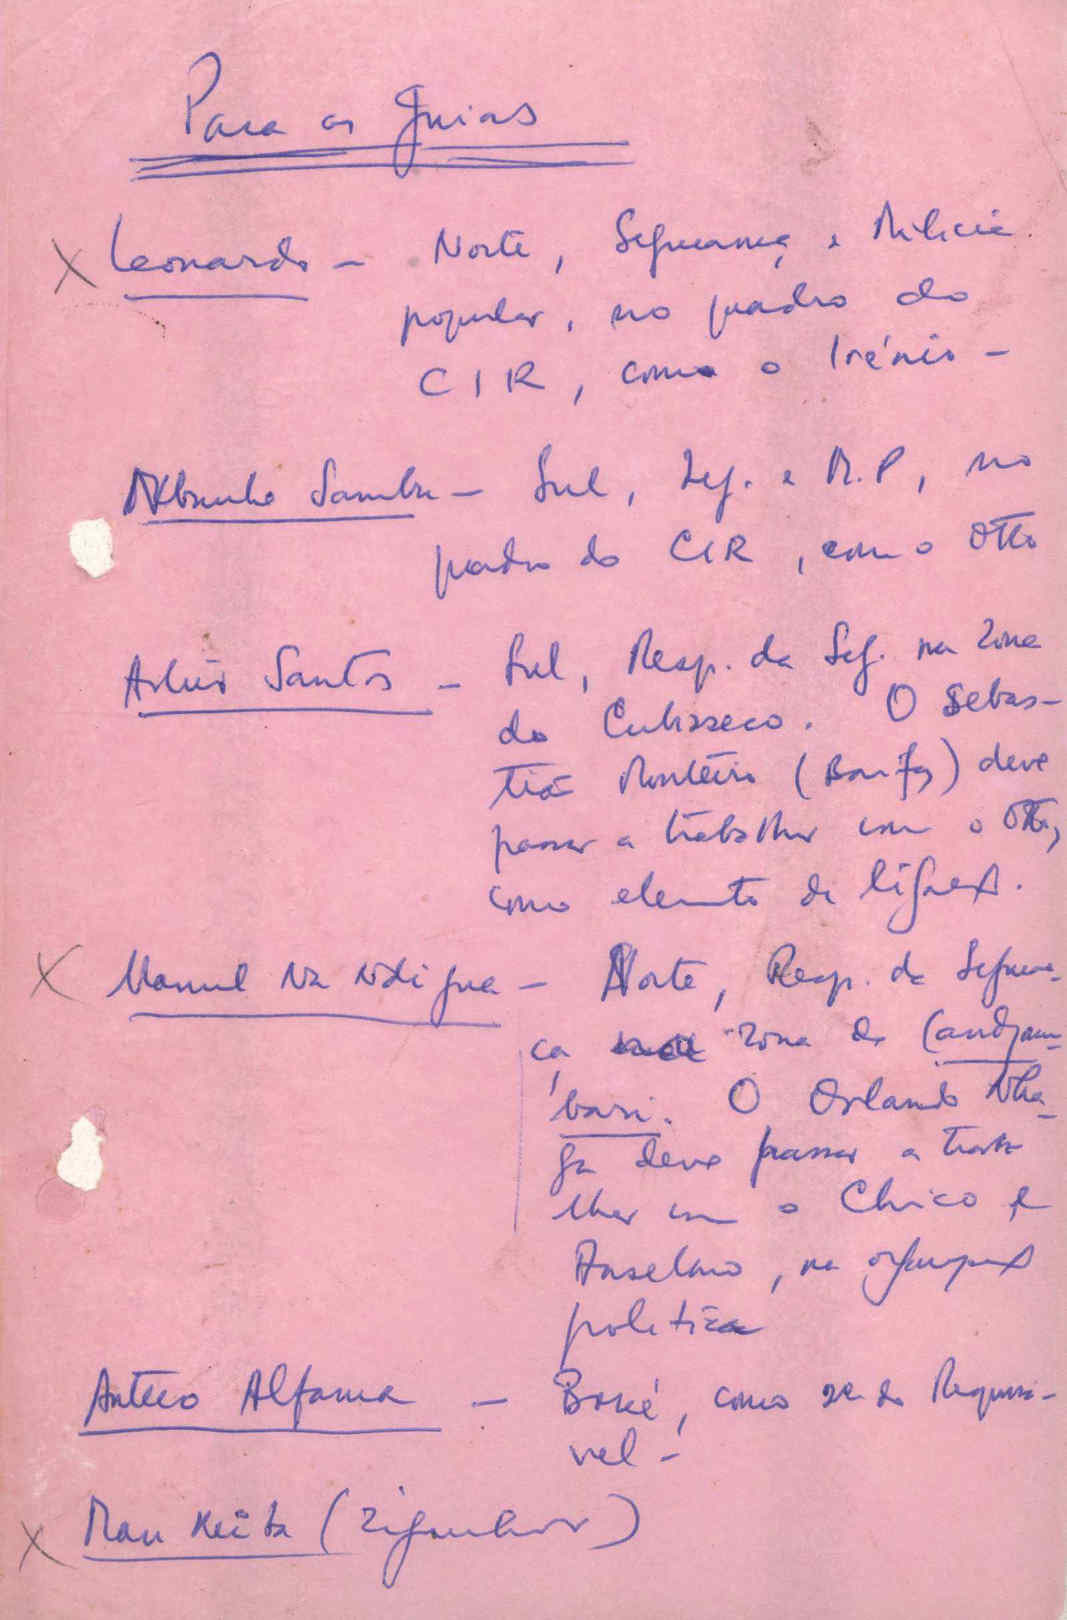 Para os Guias
X Leonardo – Norte, Segurança e Milícia
popular, no quadro do
CIR, como o Irénio –
Sambu – Sul, Seg. e M.P, no
quadro do CIR, com o Otto
Santos – Sul, Resp. da Seg. na Zona
do Cubisseco. O Sebas-
tião Monteiro (Boufs) deve
passar a trabalhar com o Otto,
como elemento de ligação.
X Manuel Na Ndigna – Norte, Resp. da Seguran-
ça zona de Candjam-
bari. O Orlando Nha-
ga deve passar a traba-
lhar com o Chico e
Anselmo, na organização
política
Antero Alfama – Boké, como 2º do Responsá-
vel –
X Mau Keita (Ziganhor)